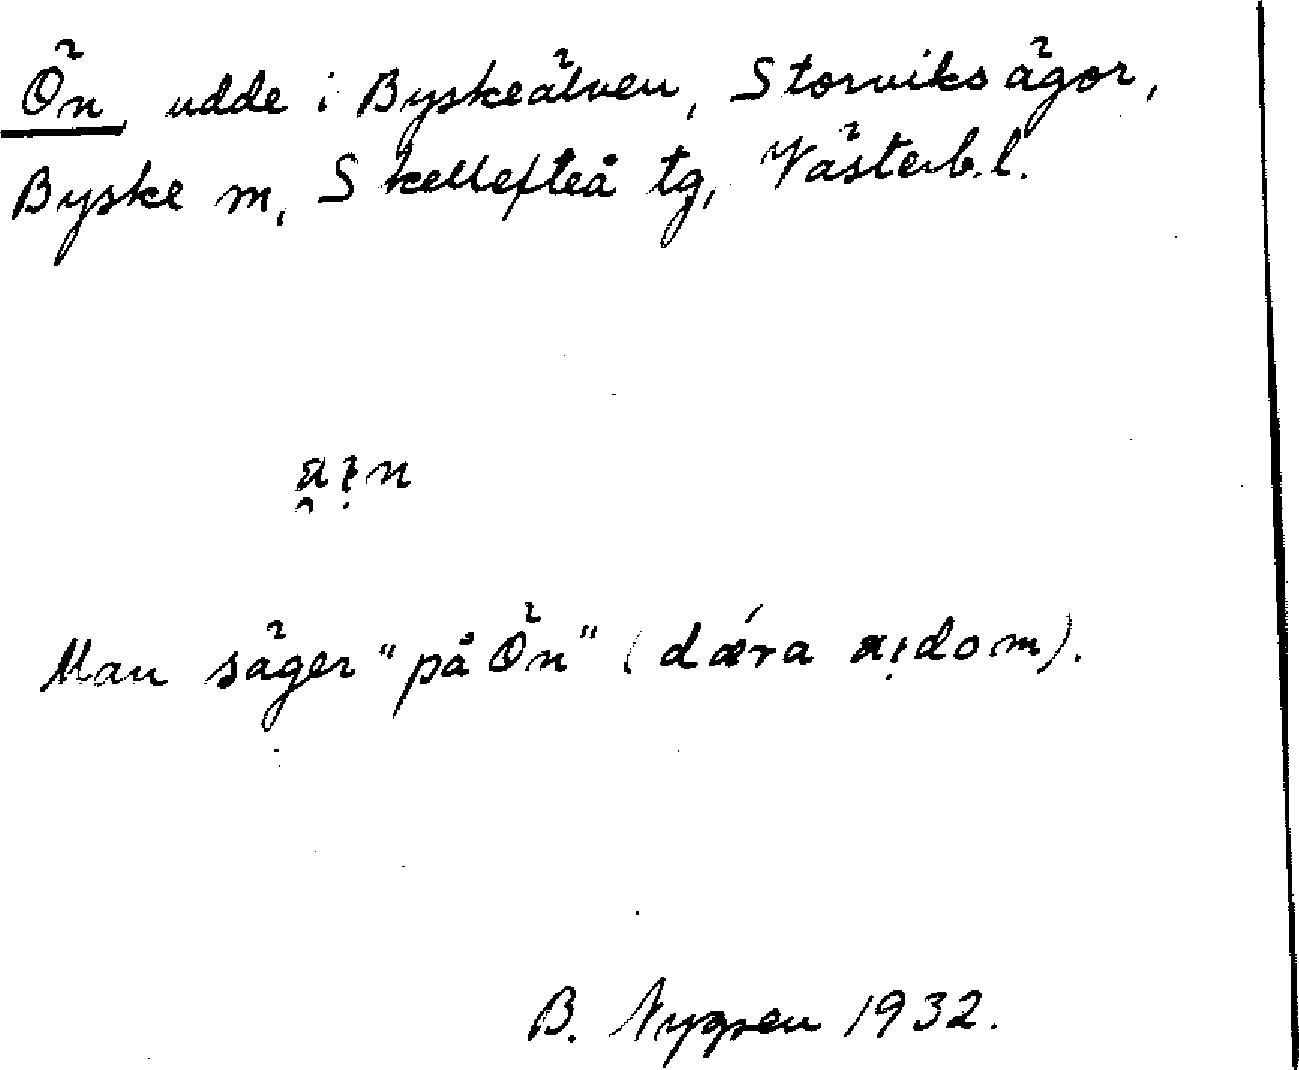 Ön, udde i Byskeälven, Storviks ägor,
Byske m, Skellefteå tg, Västerb. l.
Man säger "på Ön" (dǽra aịdom).
B. Nygren 1932.